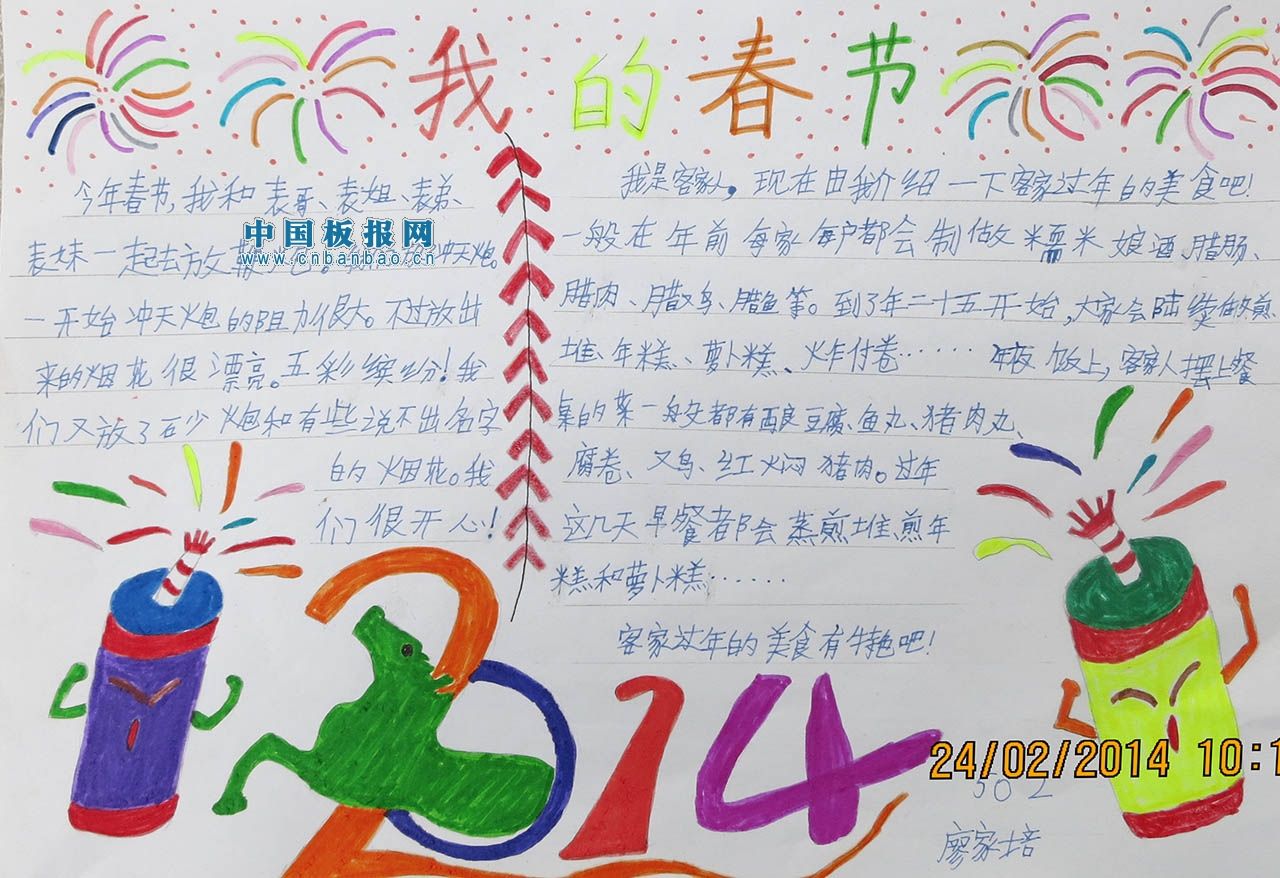 我的春节
今年春节,我和表哥、表姐、表弟、
表妹一起去放
冲天炮。
一开始冲天炮的阻力很大。不过放出
来的烟花很漂亮。五彩缤纷!我
们又放了石少炮和有些说不出名字
的烟花。我
们很开心!
中国板报网
www.cnbanbao.cn
我是客家人。现在由我介绍一下客家过年的美食吧!
一般在年前每家每户都会制做糯米娘酒、腊肠、
腊肉、腊鸡、腊鱼等。到了年二十五开始,大家会陆续做煎
堆、年糕、萝卜糕、炸付卷……年夜饭上,客家人摆上餐
桌的菜一般都有酿豆腐、鱼丸、猪肉丸、
腐卷、鸡、红焖猪肉。过年
这几天早餐都会蒸煎堆、煎年
糕和萝卜糕……
客家过年的美食有特色吧!
2014
24/02/2014 10:1
502
廖家培